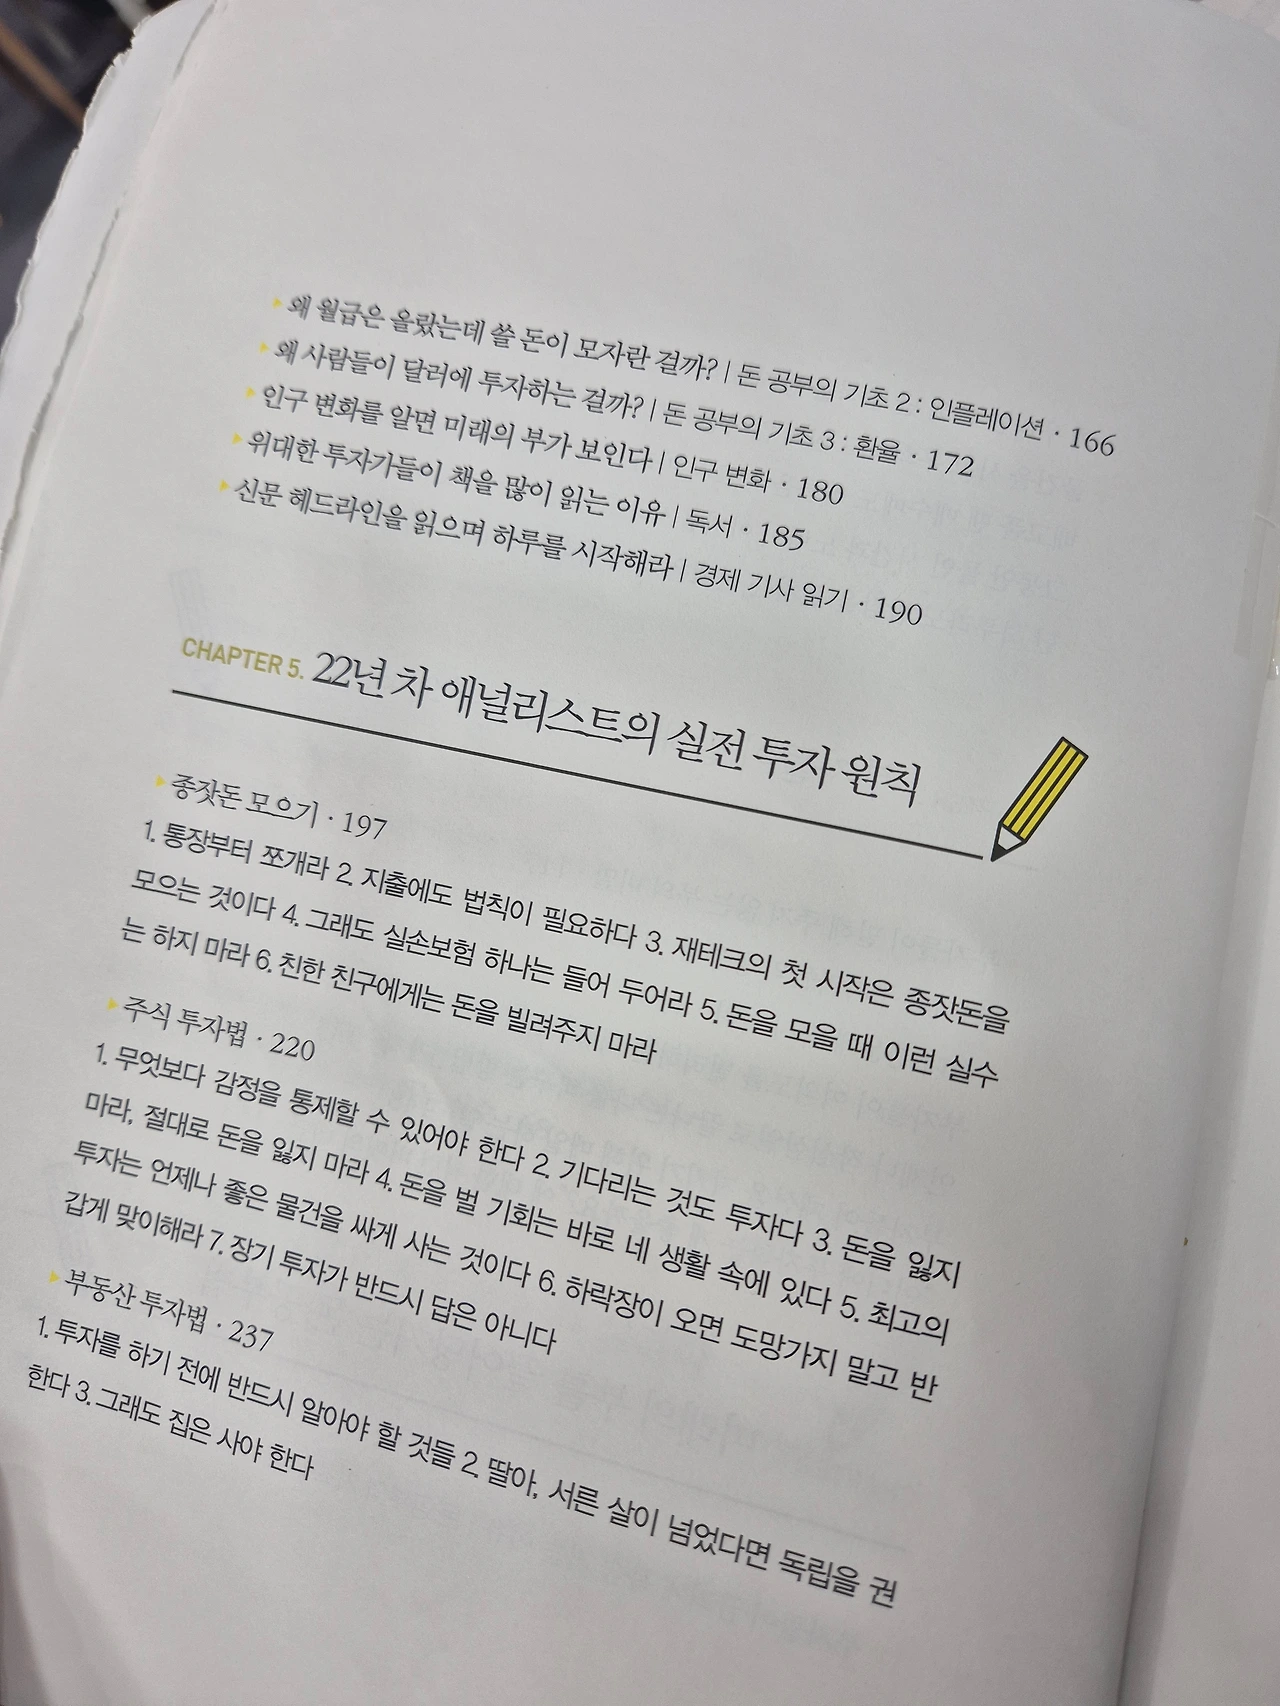 ▸ 왜 월급은 올랐는데 쓸 돈이 모자란 걸까? | 돈 공부의 기초 2 : 인플레이션 · 166
▸ 왜 사람들이 달러에 투자하는 걸까? | 돈 공부의 기초 3 : 환율 · 172
▸ 인구 변화를 알면 미래의 부가 보인다 | 인구 변화 · 180
▸ 위대한 투자가들이 책을 많이 읽는 이유 | 독서 · 185
▸ 신문 헤드라인을 읽으며 하루를 시작해라 | 경제 기사 읽기 · 190
CHAPTER 5. 22년 차 애널리스트의 실전 투자 원칙
▸ 종잣돈 모으기 · 197
1. 통장부터 쪼개라 2. 지출에도 법칙이 필요하다 3. 재테크의 첫 시작은 종잣돈을
모으는 것이다 4. 그래도 실손보험 하나는 들어 두어라 5. 돈을 모을 때 이런 실수
는 하지 마라 6. 친한 친구에게는 돈을 빌려주지 마라
▸ 주식 투자법 · 220
1. 무엇보다 감정을 통제할 수 있어야 한다 2. 기다리는 것도 투자다 3. 돈을 잃지
마라, 절대로 돈을 잃지 마라 4. 돈을 벌 기회는 바로 네 생활 속에 있다 5. 최고의
투자는 언제나 좋은 물건을 싸게 사는 것이다 6. 하락장이 오면 도망가지 말고 반
갑게 맞이해라 7. 장기 투자가 반드시 답은 아니다
▸ 부동산 투자법 · 237
1. 투자를 하기 전에 반드시 알아야 할 것들 2. 딸아, 서른 살이 넘었다면 독립을 권
한다 3. 그래도 집은 사야 한다